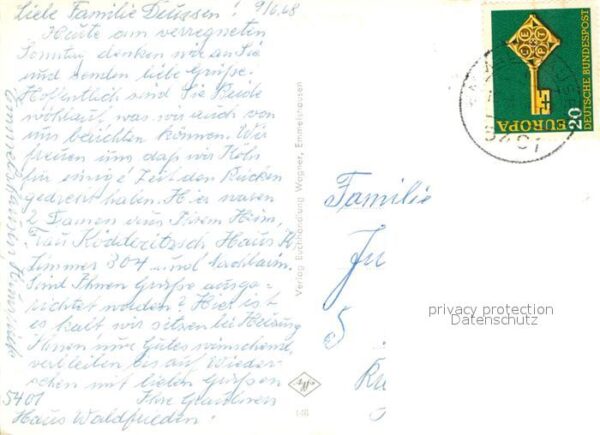 Liebe Familie Deussen! 9/6.68
Heute am verregneten
Sonntag denken wir an Sie
und senden liebe Grüße.
Hoffentlich sind Sie Beide
wohlauf, was wir auch von
uns berichten können. Wir
freuen uns daß wir Köln
für einige Zeit den Rücken
gedreht haben. Hier waren
2 Damen aus Ihrem Heim,
Frau Haus
Zimmer 304 und
Sind Ihnen Grüße ausge-
richtet worden? Hier ist
es kalt wir sitzen bei Heizung
Ihnen nur Gutes wünschend
verbleiben bis auf Wieder-
sehen mit lieben Grüßen
5401 Ihre
Haus Waldfrieden!
Emmelshausen, Hunsrück
Verlag Buchhandlung Wagner, Emmelshausen
EUROPA
20
DEUTSCHE BUNDESPOST
5401
Familie
Ju
S
privacy protection
Datenschutz